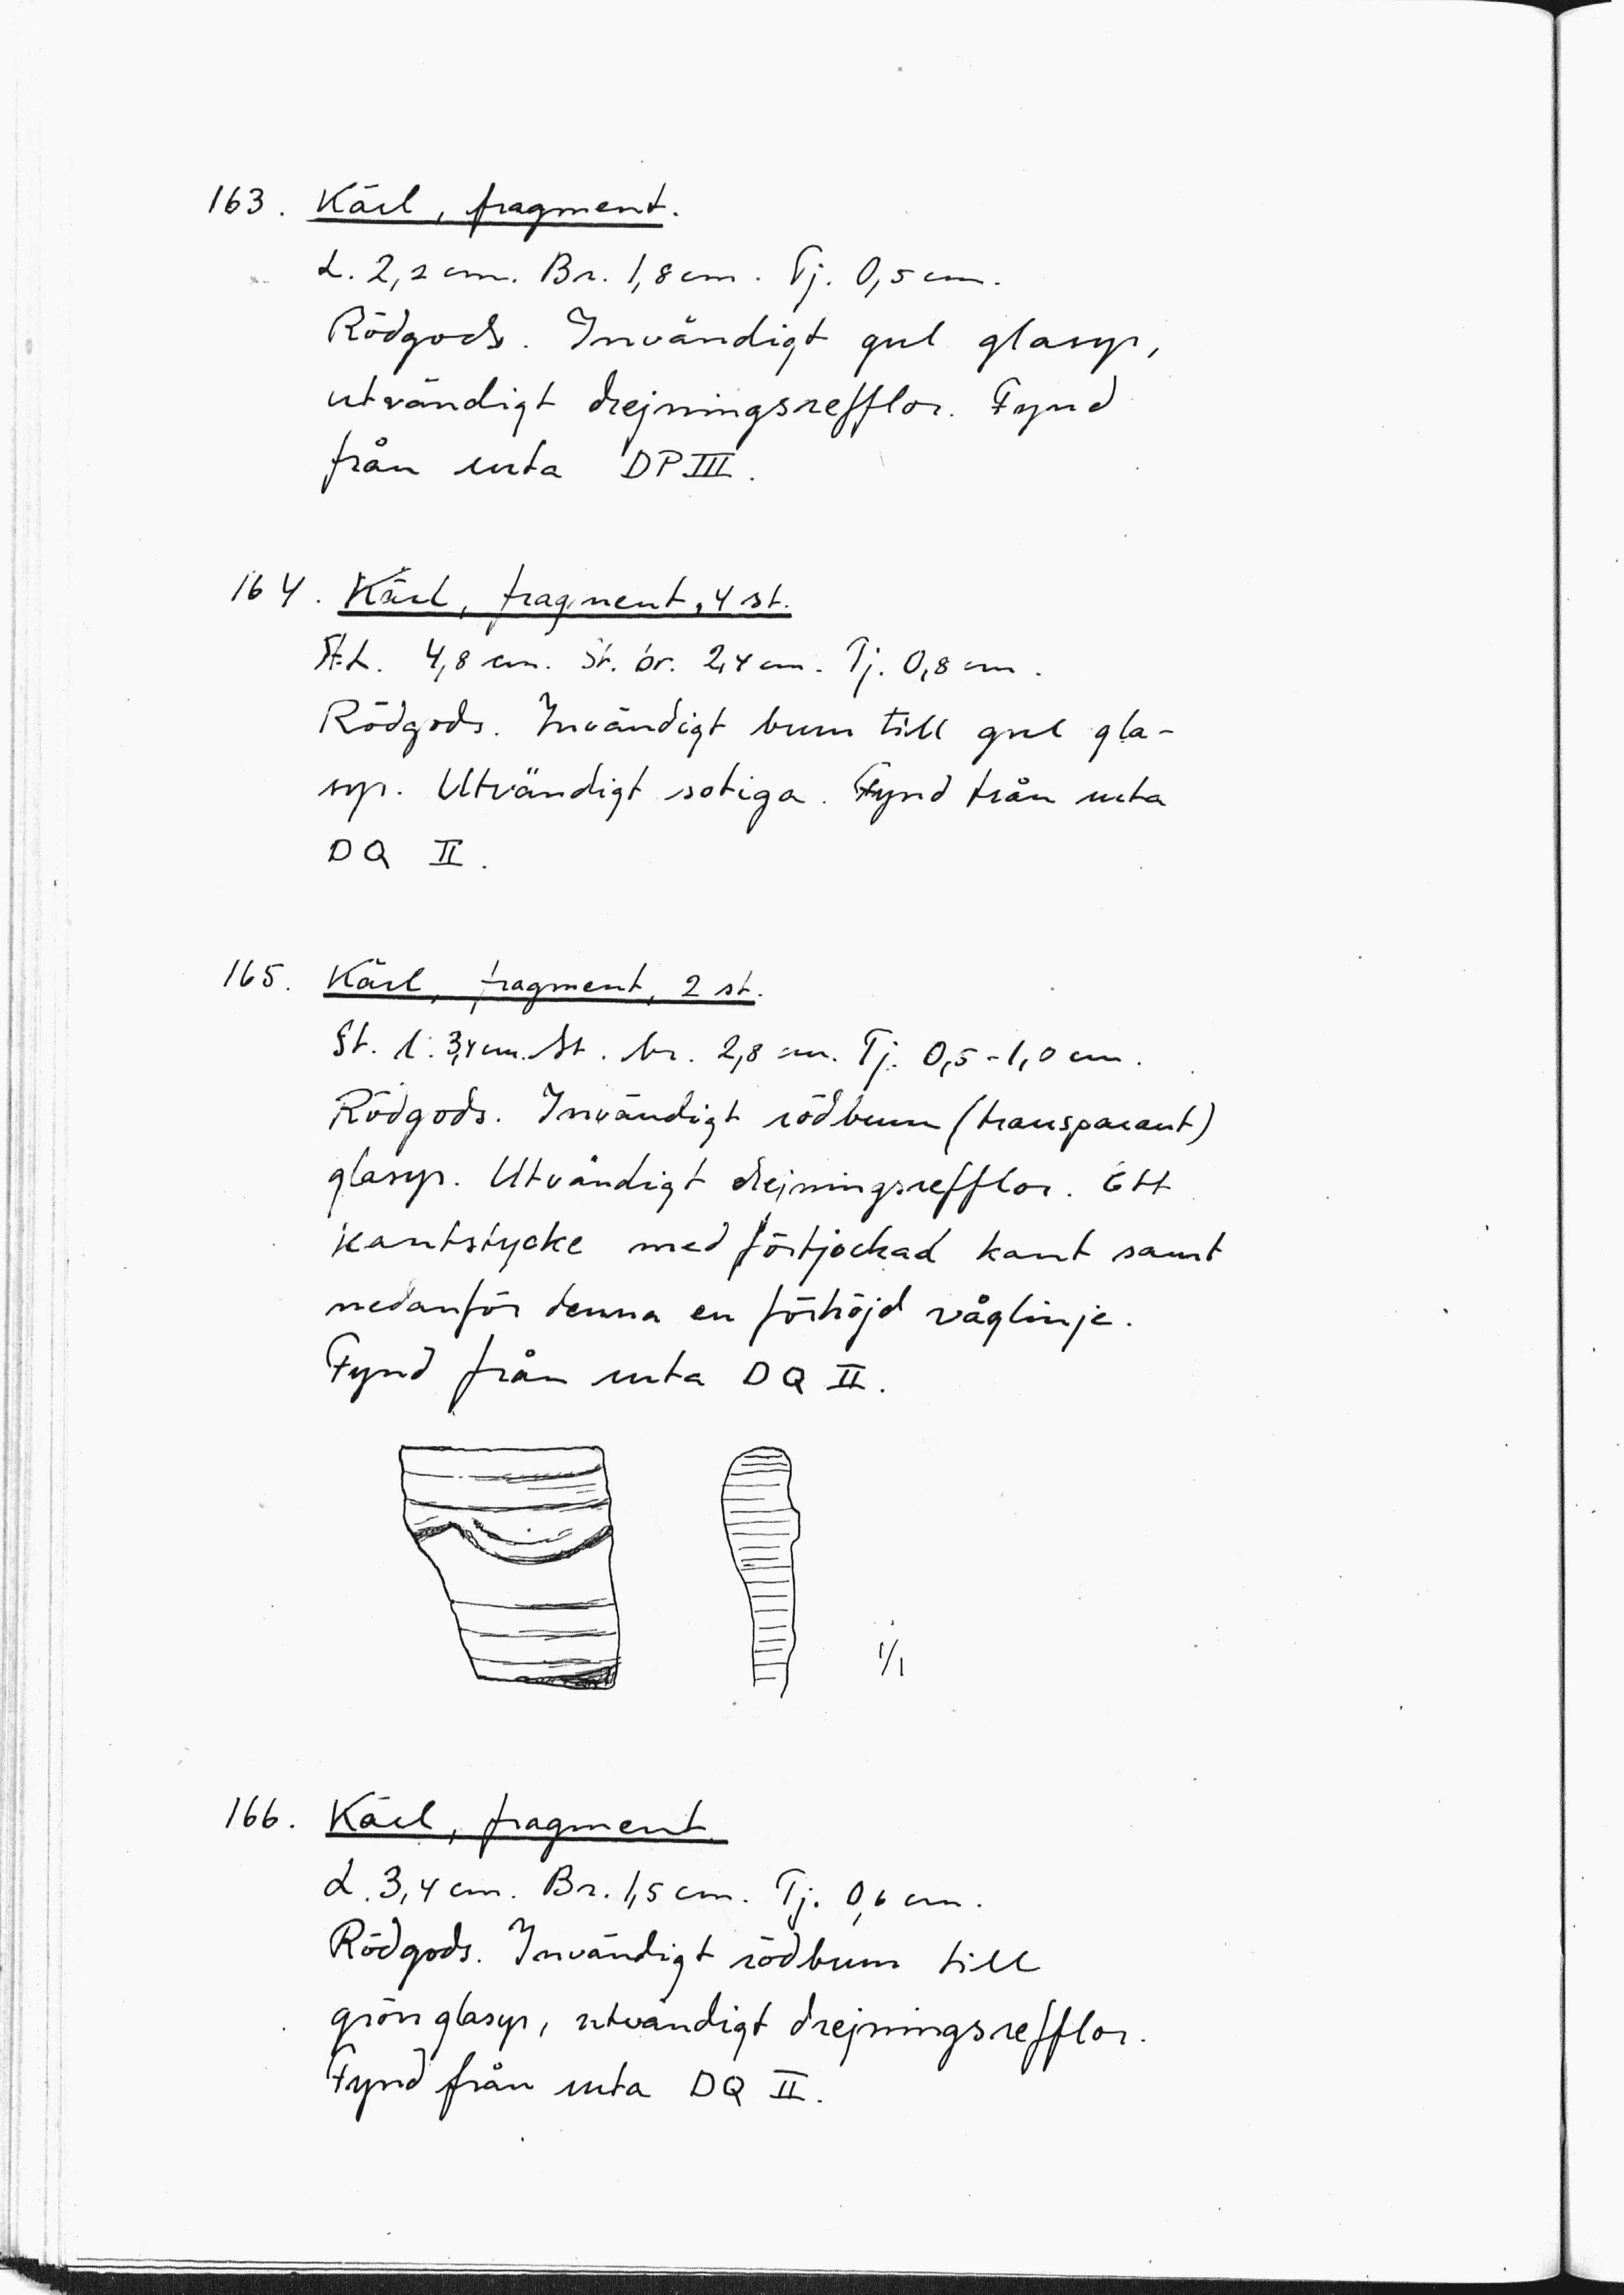 163. Kärl, fragment.
L. 2,2 cm. Br. 1,8 cm. Tj. 0,5 cm.
Rödgods. Invändigt gul glasyr,
utvändigt drejningsrefflor. Fynd
från ruta DP III.
164. Kärl, fragment, 4 st.
St. L. 4,8 cm. St. br. 2,4 cm. Tj. 0,8 cm.
Rödgods. Invändigt brun till gul gla-
syr. Utvändigt sotiga. Fynd från ruta
DQ II.
165. Kärl, fragment, 2 st.
St. l. 3,4 cm. St. br. 2,8 cm. Tj. 0,5-1,0 cm.
Rödgods. Invändigt rödbrun (transparant)
glasyr. Utvändigt drejningsrefflor. Ett
kantstycke med förtjockad kant samt
nedanför denna en förhöjd våglinje.
Fynd från ruta DQ II.
1/1
166. Kärl, fragment.
L. 3,4 cm. Br. 1,5 cm. Tj. 0,6 cm.
Rödgods. Invändigt rödbrun till
grön glasyr, utvändigt drejningsrefflor.
Fynd från ruta DQ II.